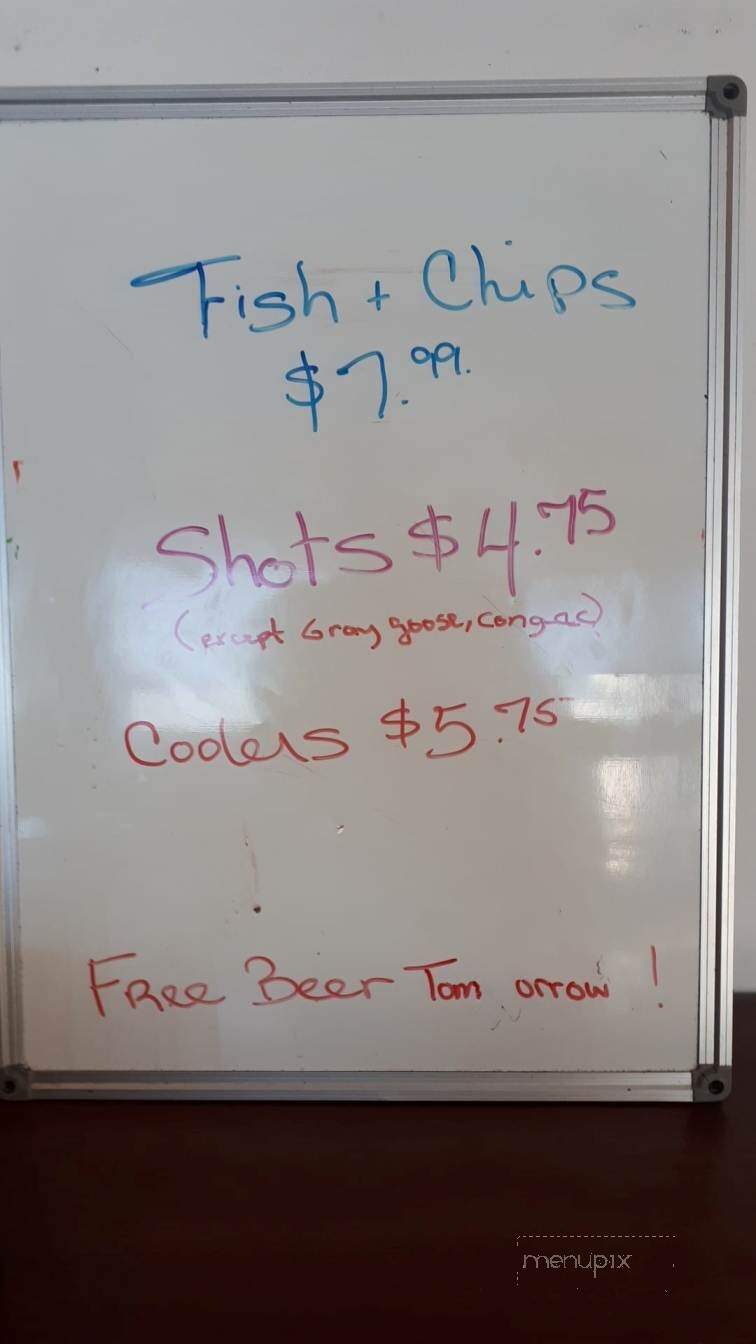 Fish + Chips
$7.99.
Shots $4.75
(except Gray goose, congac)
Coolers $5.75
Free Beer Tom orrow !
menupix